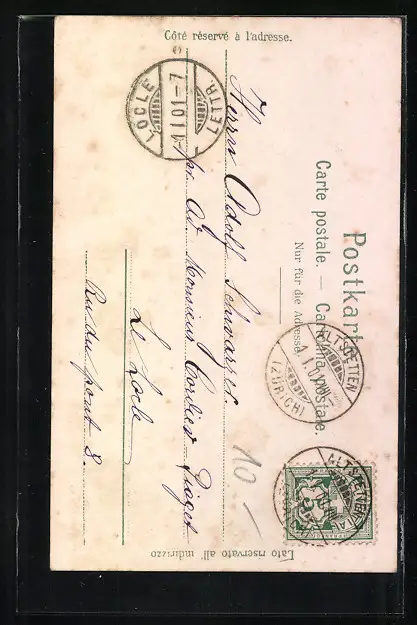 Côté réservé à l'adresse.
Postkarte
Carte postale. — Cartolina postale.
Nur für die Adresse.
LOCLE
1.I.01-7
LETTR.
ALTSTETTEN
(ZÜRICH)
ALTSTETTEN
Herrn Adolf Schwarzer
pr. Ad. Monsieur Cordier Piaget
Le Locle
Rue du pont 8.
10 —
Lato riservato all' indirizzo